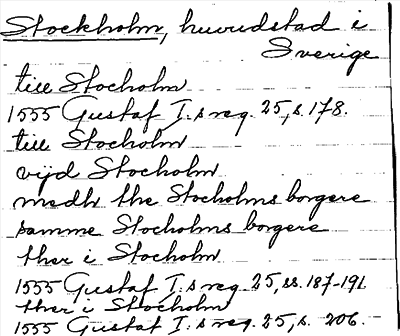 Stockholm, huvudstad i
Sverige
till Stocholm
1555 Gustaf I.s reg. 25, s. 178.
till Stocholm
vijd Stocholm
medh the Stocholms borgere
samme Stocholms borgere
ther i Stocholm
1555 Gustaf I.s reg. 25, ss. 187-191
ther i Stocholm
1555 Gustaf I.s reg. 25, s. 206.